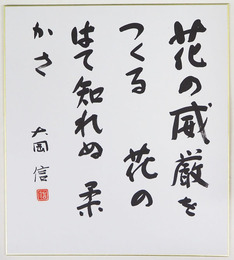 花の威厳を
つくる 花の
はて知れぬ 柔
かさ
大岡信